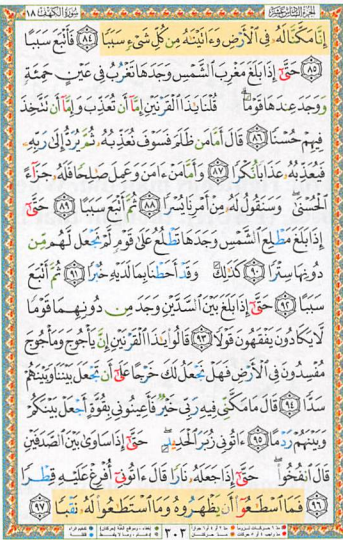 الجزء السادس عشر سورة الكهف ١٨
إِنَّا مَكَّنَّا لَهُۥ فِى ٱلْأَرْضِ وَءَاتَيْنَٰهُ مِن كُلِّ شَىْءٍ سَبَبًا ٨٤ فَأَتْبَعَ سَبَبًا
٨٥ حَتَّىٰٓ إِذَا بَلَغَ مَغْرِبَ ٱلشَّمْسِ وَجَدَهَا تَغْرُبُ فِى عَيْنٍ حَمِئَةٍ
وَوَجَدَ عِندَهَا قَوْمًا ۗ قُلْنَا يَٰذَا ٱلْقَرْنَيْنِ إِمَّآ أَن تُعَذِّبَ وَإِمَّآ أَن تَتَّخِذَ
فِيهِمْ حُسْنًا ٨٦ قَالَ أَمَّا مَن ظَلَمَ فَسَوْفَ نُعَذِّبُهُۥ ثُمَّ يُرَدُّ إِلَىٰ رَبِّهِۦ
فَيُعَذِّبُهُۥ عَذَابًا نُّكْرًا ٨٧ وَأَمَّا مَنْ ءَامَنَ وَعَمِلَ صَٰلِحًا فَلَهُۥ جَزَآءً
ٱلْحُسْنَىٰ ۖ وَسَنَقُولُ لَهُۥ مِنْ أَمْرِنَا يُسْرًا ٨٨ ثُمَّ أَتْبَعَ سَبَبًا ٨٩ حَتَّىٰٓ
إِذَا بَلَغَ مَطْلِعَ ٱلشَّمْسِ وَجَدَهَا تَطْلُعُ عَلَىٰ قَوْمٍ لَّمْ نَجْعَل لَّهُم مِّن
دُونِهَا سِتْرًا ٩٠ كَذَٰلِكَ ۖ وَقَدْ أَحَطْنَا بِمَا لَدَيْهِ خُبْرًا ٩١ ثُمَّ أَتْبَعَ
سَبَبًا ٩٢ حَتَّىٰٓ إِذَا بَلَغَ بَيْنَ ٱلسَّدَّيْنِ وَجَدَ مِن دُونِهِمَا قَوْمًا
لَّا يَكَادُونَ يَفْقَهُونَ قَوْلًا ٩٣ قَالُوا۟ يَٰذَا ٱلْقَرْنَيْنِ إِنَّ يَأْجُوجَ وَمَأْجُوجَ
مُفْسِدُونَ فِى ٱلْأَرْضِ فَهَلْ نَجْعَلُ لَكَ خَرْجًا عَلَىٰٓ أَن تَجْعَلَ بَيْنَنَا وَبَيْنَهُمْ
سَدًّا ٩٤ قَالَ مَا مَكَّنِّى فِيهِ رَبِّى خَيْرٌ فَأَعِينُونِى بِقُوَّةٍ أَجْعَلْ بَيْنَكُمْ
وَبَيْنَهُمْ رَدْمًا ٩٥ ءَاتُونِى زُبَرَ ٱلْحَدِيدِ ۖ حَتَّىٰٓ إِذَا سَاوَىٰ بَيْنَ ٱلصَّدَفَيْنِ
قَالَ ٱنفُخُوا۟ ۖ حَتَّىٰٓ إِذَا جَعَلَهُۥ نَارًا قَالَ ءَاتُونِىٓ أُفْرِغْ عَلَيْهِ قِطْرًا
٩٦ فَمَا ٱسْطَٰعُوٓا۟ أَن يَظْهَرُوهُ وَمَا ٱسْتَطَٰعُوا۟ لَهُۥ نَقْبًا ٩٧
٣٠٣